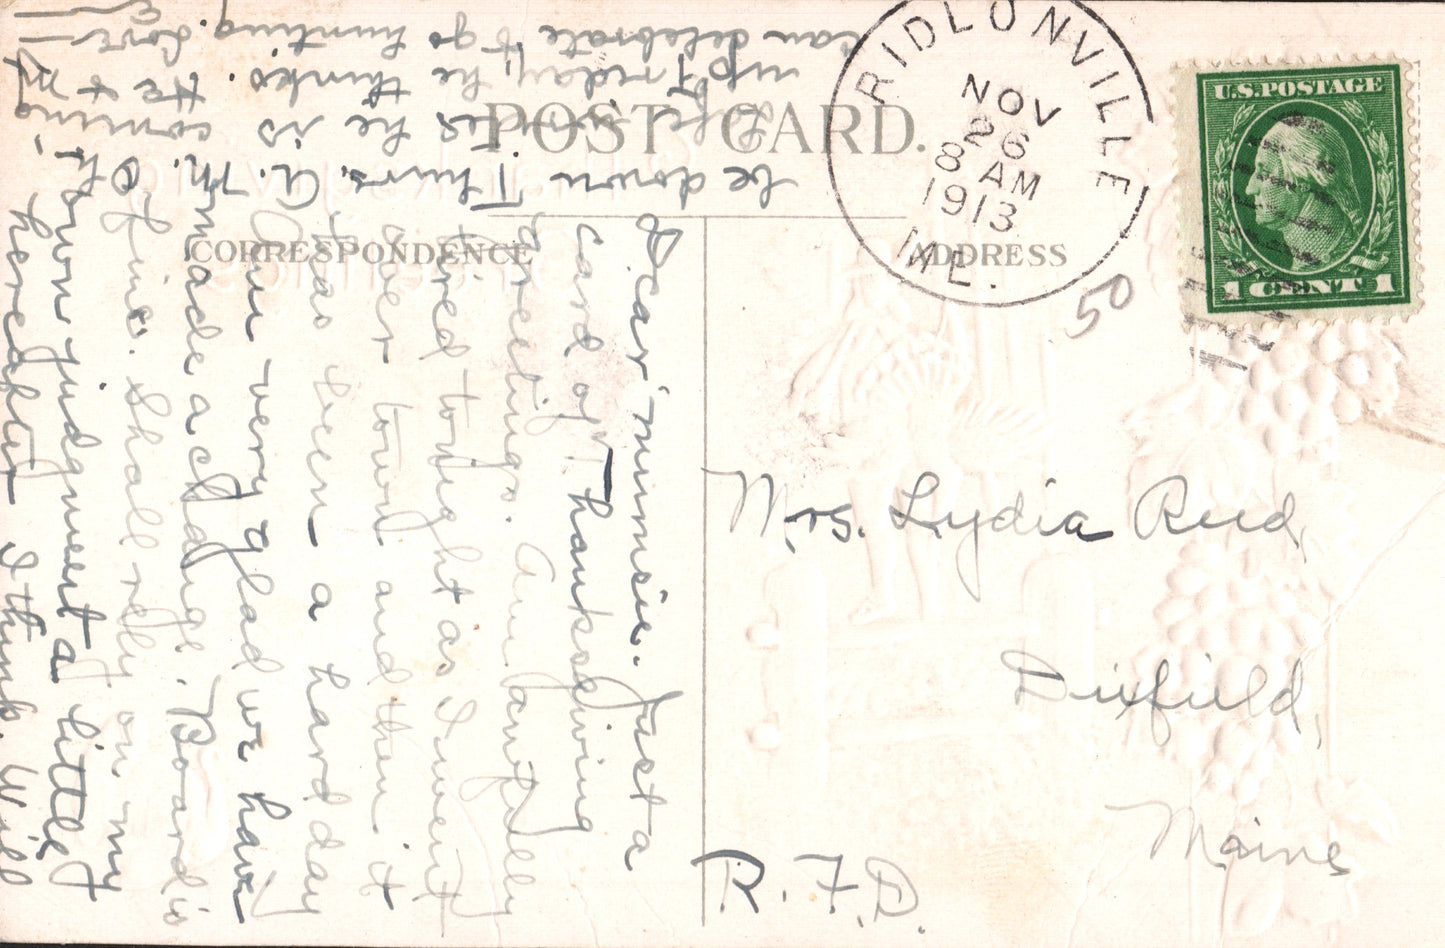 POST CARD.
CORRESPONDENCE
ADDRESS
RIDLONVILLE
NOV
26
8 AM
1913
ME.
U.S. POSTAGE
1 CENT 1
50
Dear Minnie. Just a
card of Thanksgiving
greetings. Am awfully
tired tonight as I went
over town and then it
has been a hard day
Am very glad we have
made a change. Board is
fine. Shall rely on my
own judgment a little
hereafter I think. Will
be down Thurs. A. M. Oh-
he is coming
up Friday, he thinks. He +
can celebrate & go hunting. Love-
E
Mrs. Lydia Reed,
Dixfield,
Maine
R.F.D.